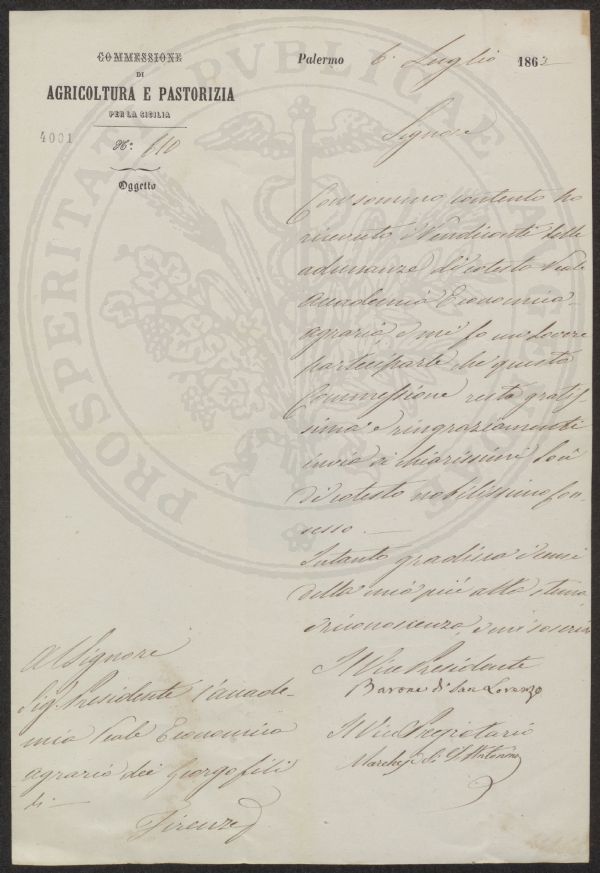 COMMESSIONE
DI
AGRICOLTURA E PASTORIZIA
PER LA SICILIA
4001
N.° 610
Oggetto
Palermo 6 Luglio 1862
Signore
Con sommo contento ho
ricevuto i Rendiconti delle
adunanze di cotesta Reale
Accademia Economico
agraria e mi fo un dovere
parteciparle che questa
Commessione resta gratis-
sima e ringraziamenti
invia ai chiarissimi Socî
di cotesto nobilissimo Con-
sesso.—
Intanto gradisca i sensi
della mia più alta stima
e riconoscenza, e mi soscrivo
Il Vice Presidente
Barone di San Lorenzo
Il Vice Segretario
Marchese di S. Antonino
Al Signore
Sig. Presidente l'Accade-
mia Reale Economico
agraria dei Georgofili
di—
Firenze
PROSPERITATI PUBLICAE